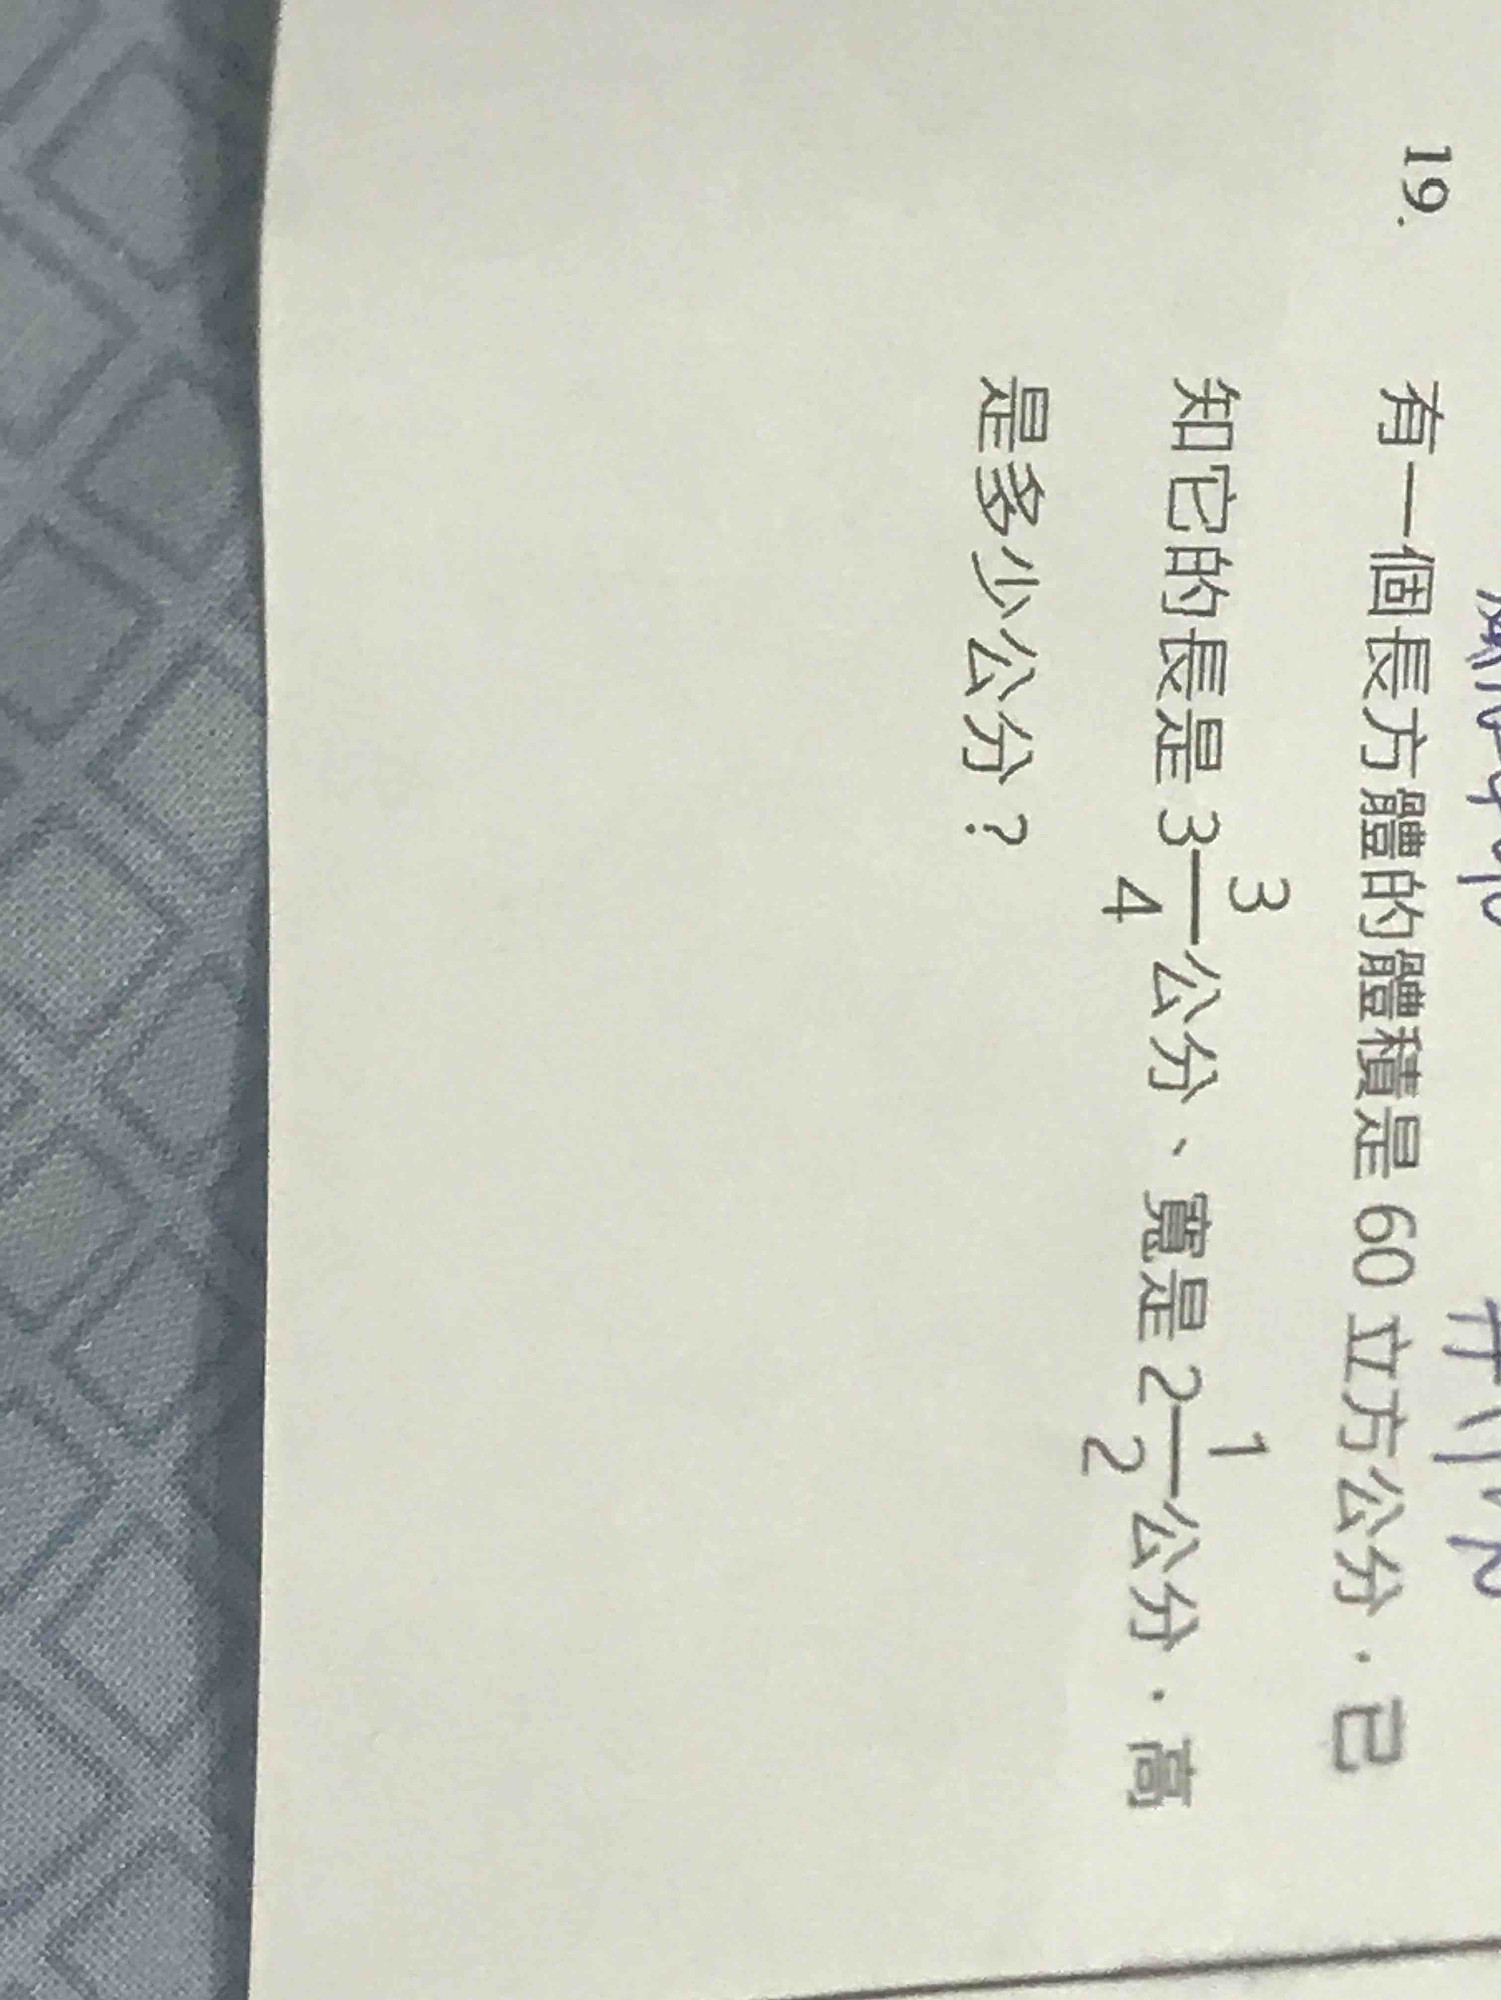 19. 有一個長方體的體積是 60 立方公分,已
知它的長是 3 3/4 公分、寬是 2 1/2 公分,高
是多少公分?